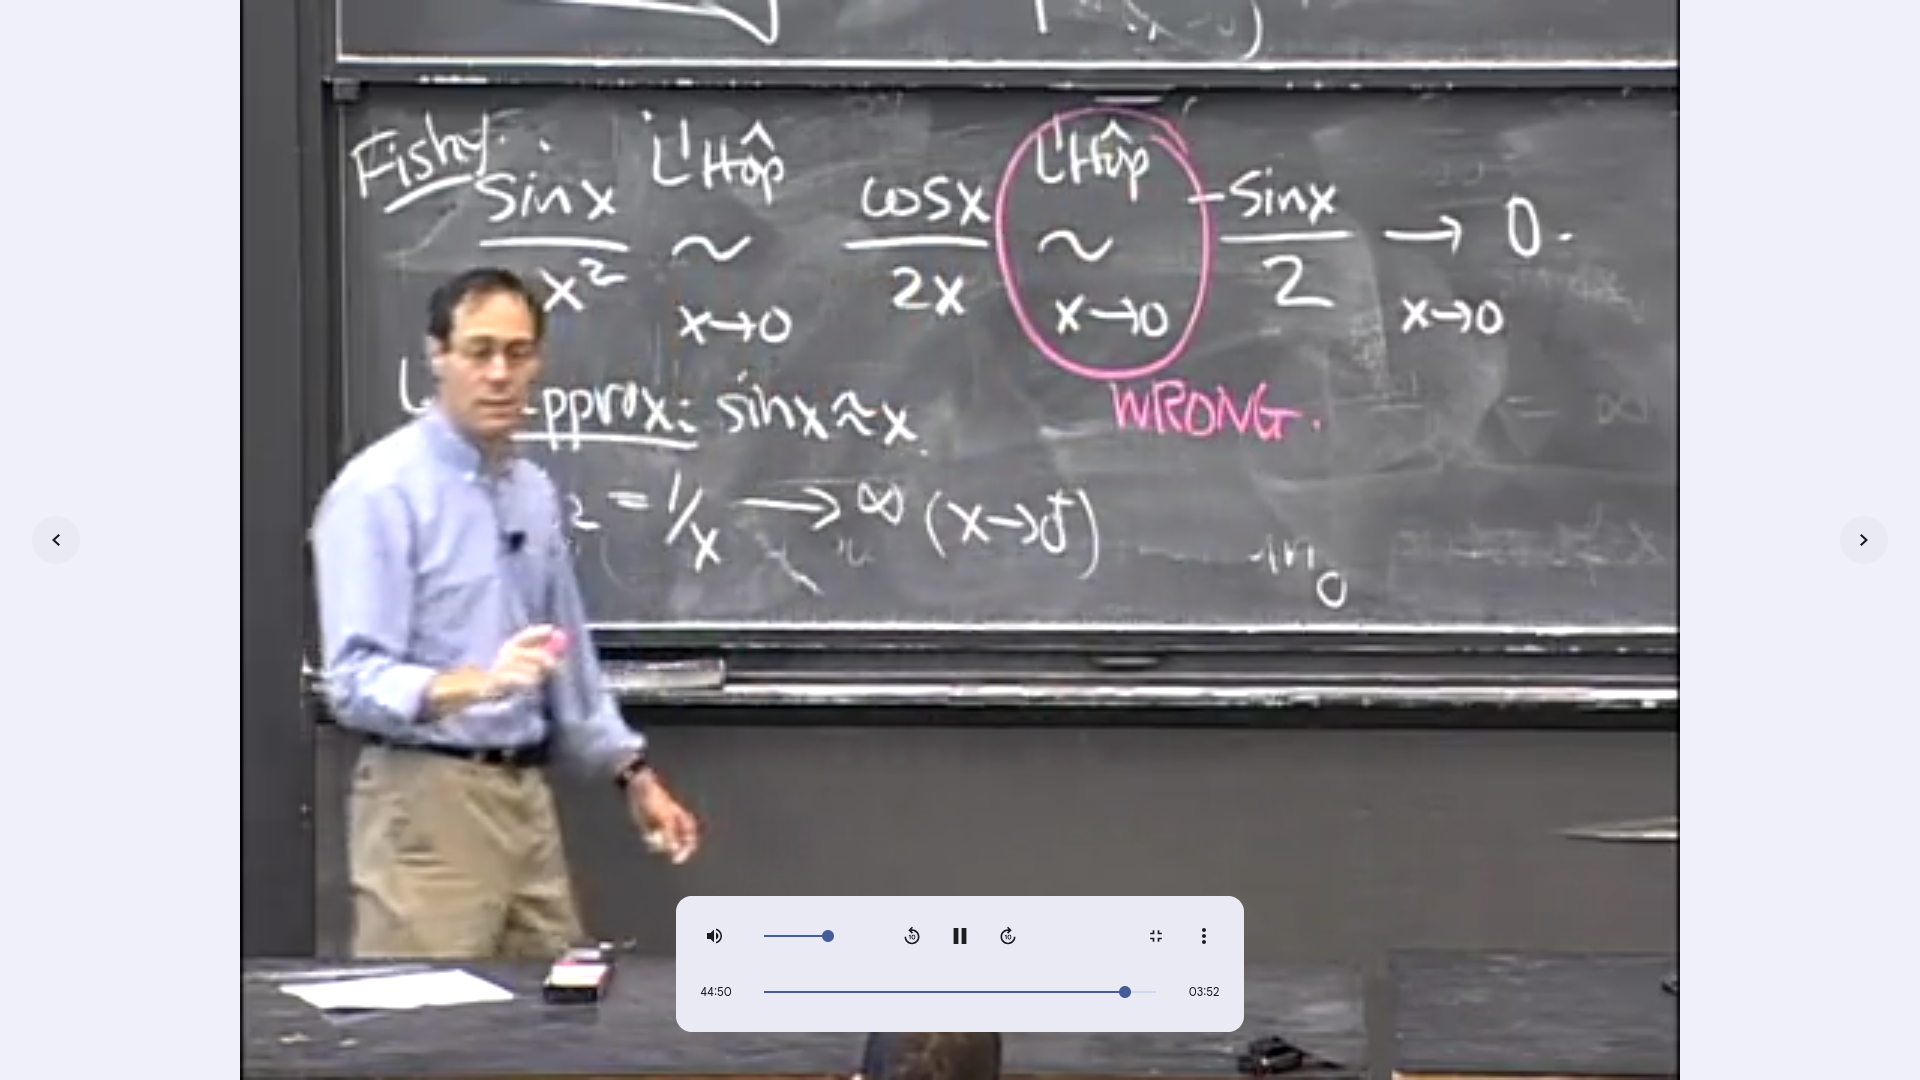 Fishy:
sinx/x² L'Hôp ~ x→0 cosx/2x L'Hôp ~ x→0 -sinx/2 → 0. x→0
WRONG.
sinx≈x
2 = 1/x → ∞ (x→0⁺)
44:50
03:52